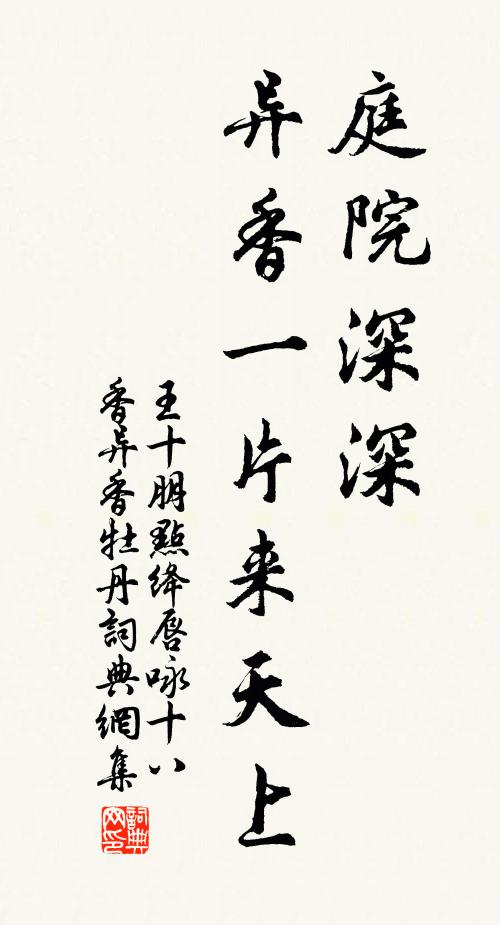 庭院深深
异香一片来天上
王十朋點绛唇咏十八
香异香牡丹詞典網集
詞典网印